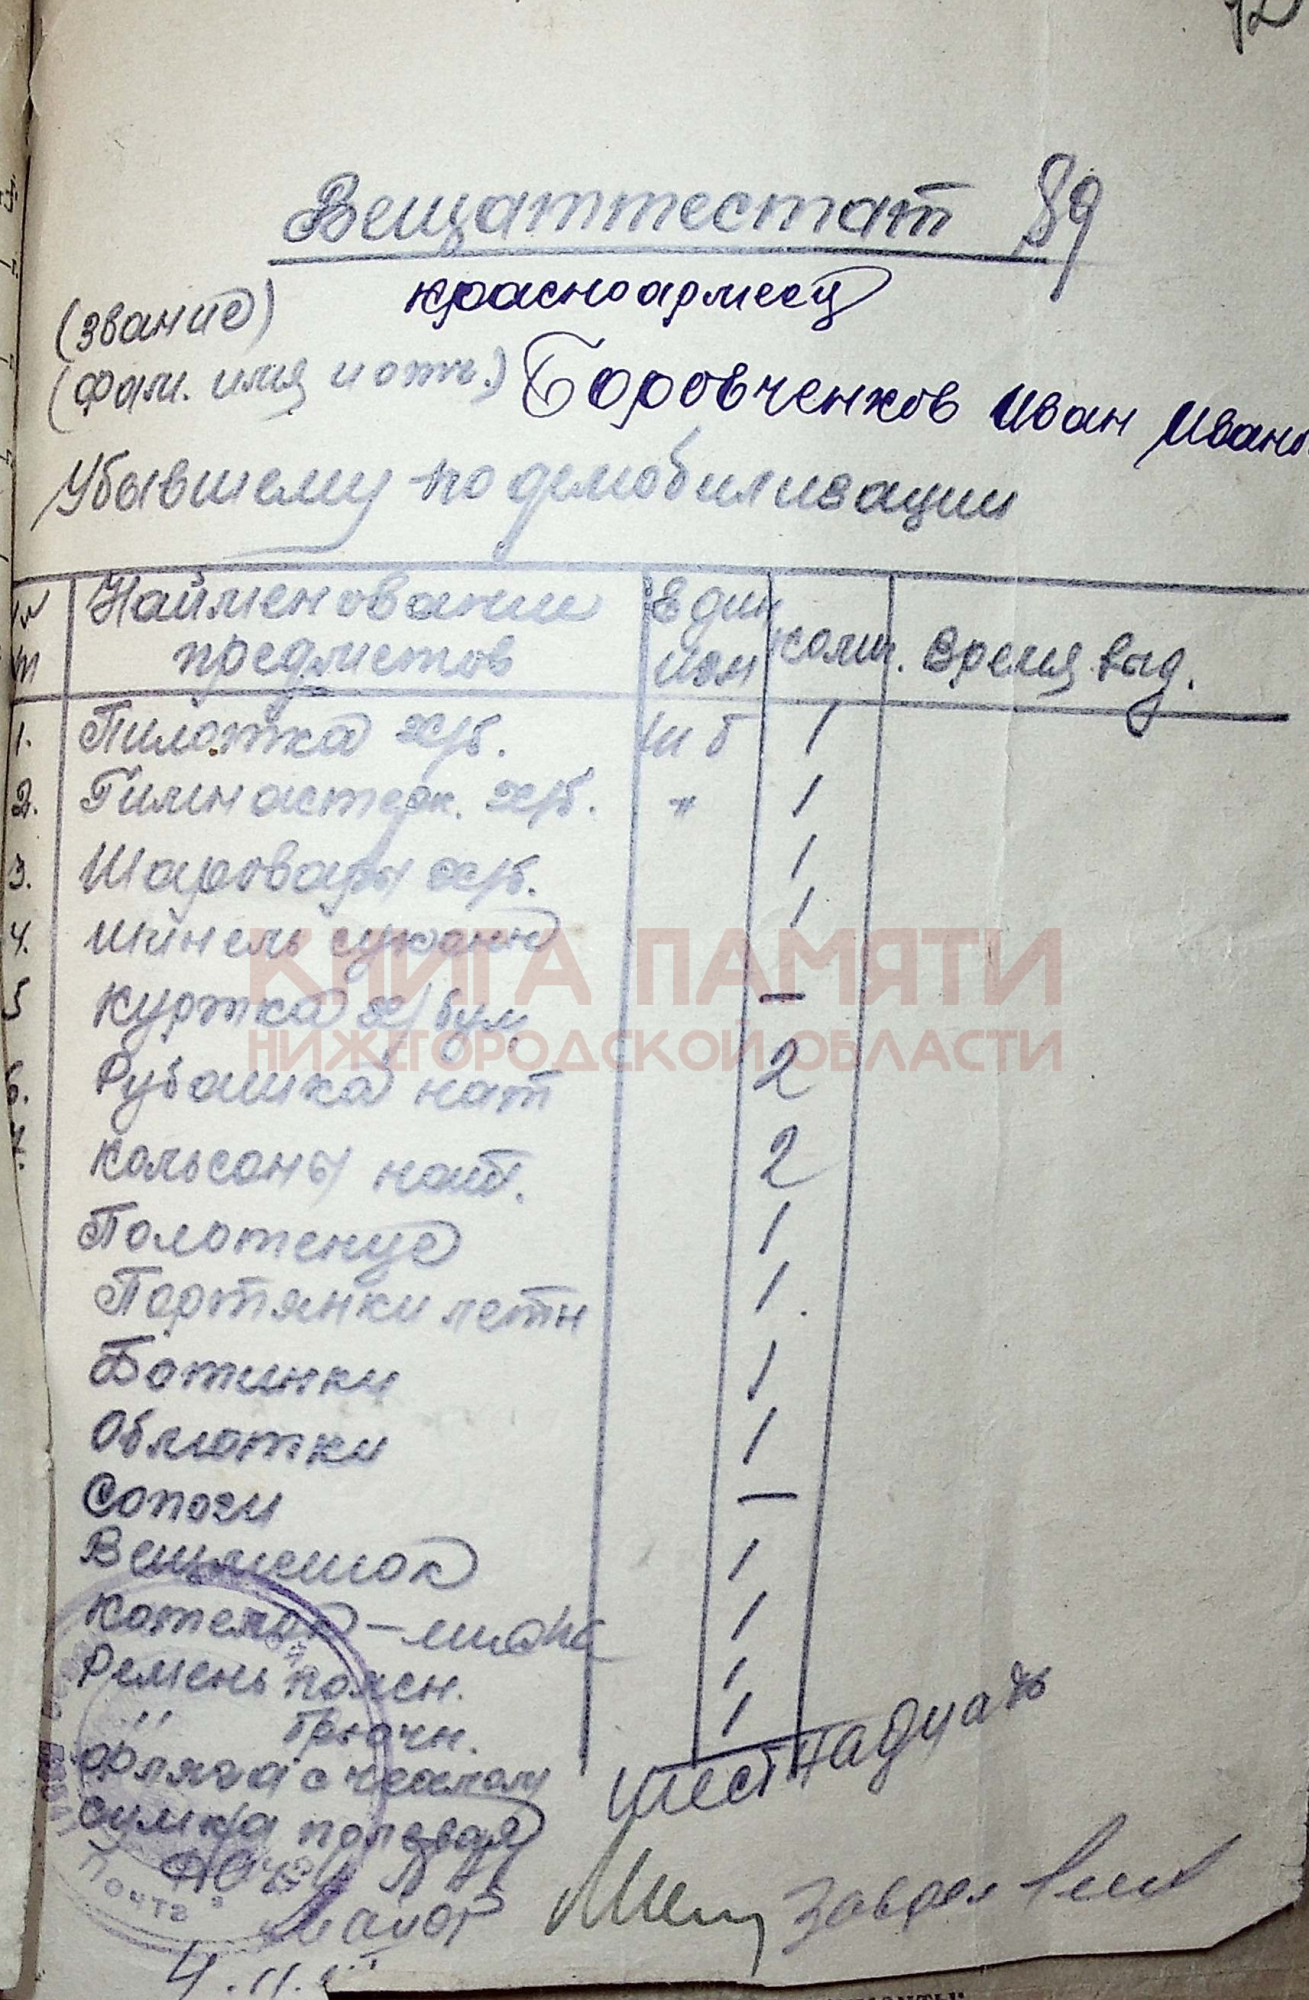 Вещаттестат 89
(звание) красноармеец
(фам. имя и отч.) Боровченков Иван Ивано
Убывшему по демобилизации
Найменование предметов Един изм колич. время выд.
1. Пилотка х/б. шт 1
2. Гимнастерк. х/б. " 1
3. Шаровары х/б. 1
4. Шинель сукон 1
5 Куртка х/бум —
6. Рубашка нат 2
7. Кальсоны нат. 2
Полотенце 1
Портянки летн 1.
Ботинки 1
Обмотки 1
Сапоги —
Вещмешок 1
Котелок 1
Ремень поясн. 1
" брючн. 1
Фляга с чехлом
Сумка полевая
шестнадцать
майор
Почта
4.11.
КНИГА ПАМЯТИ
НИЖЕГОРОДСКОЙ ОБЛАСТИ